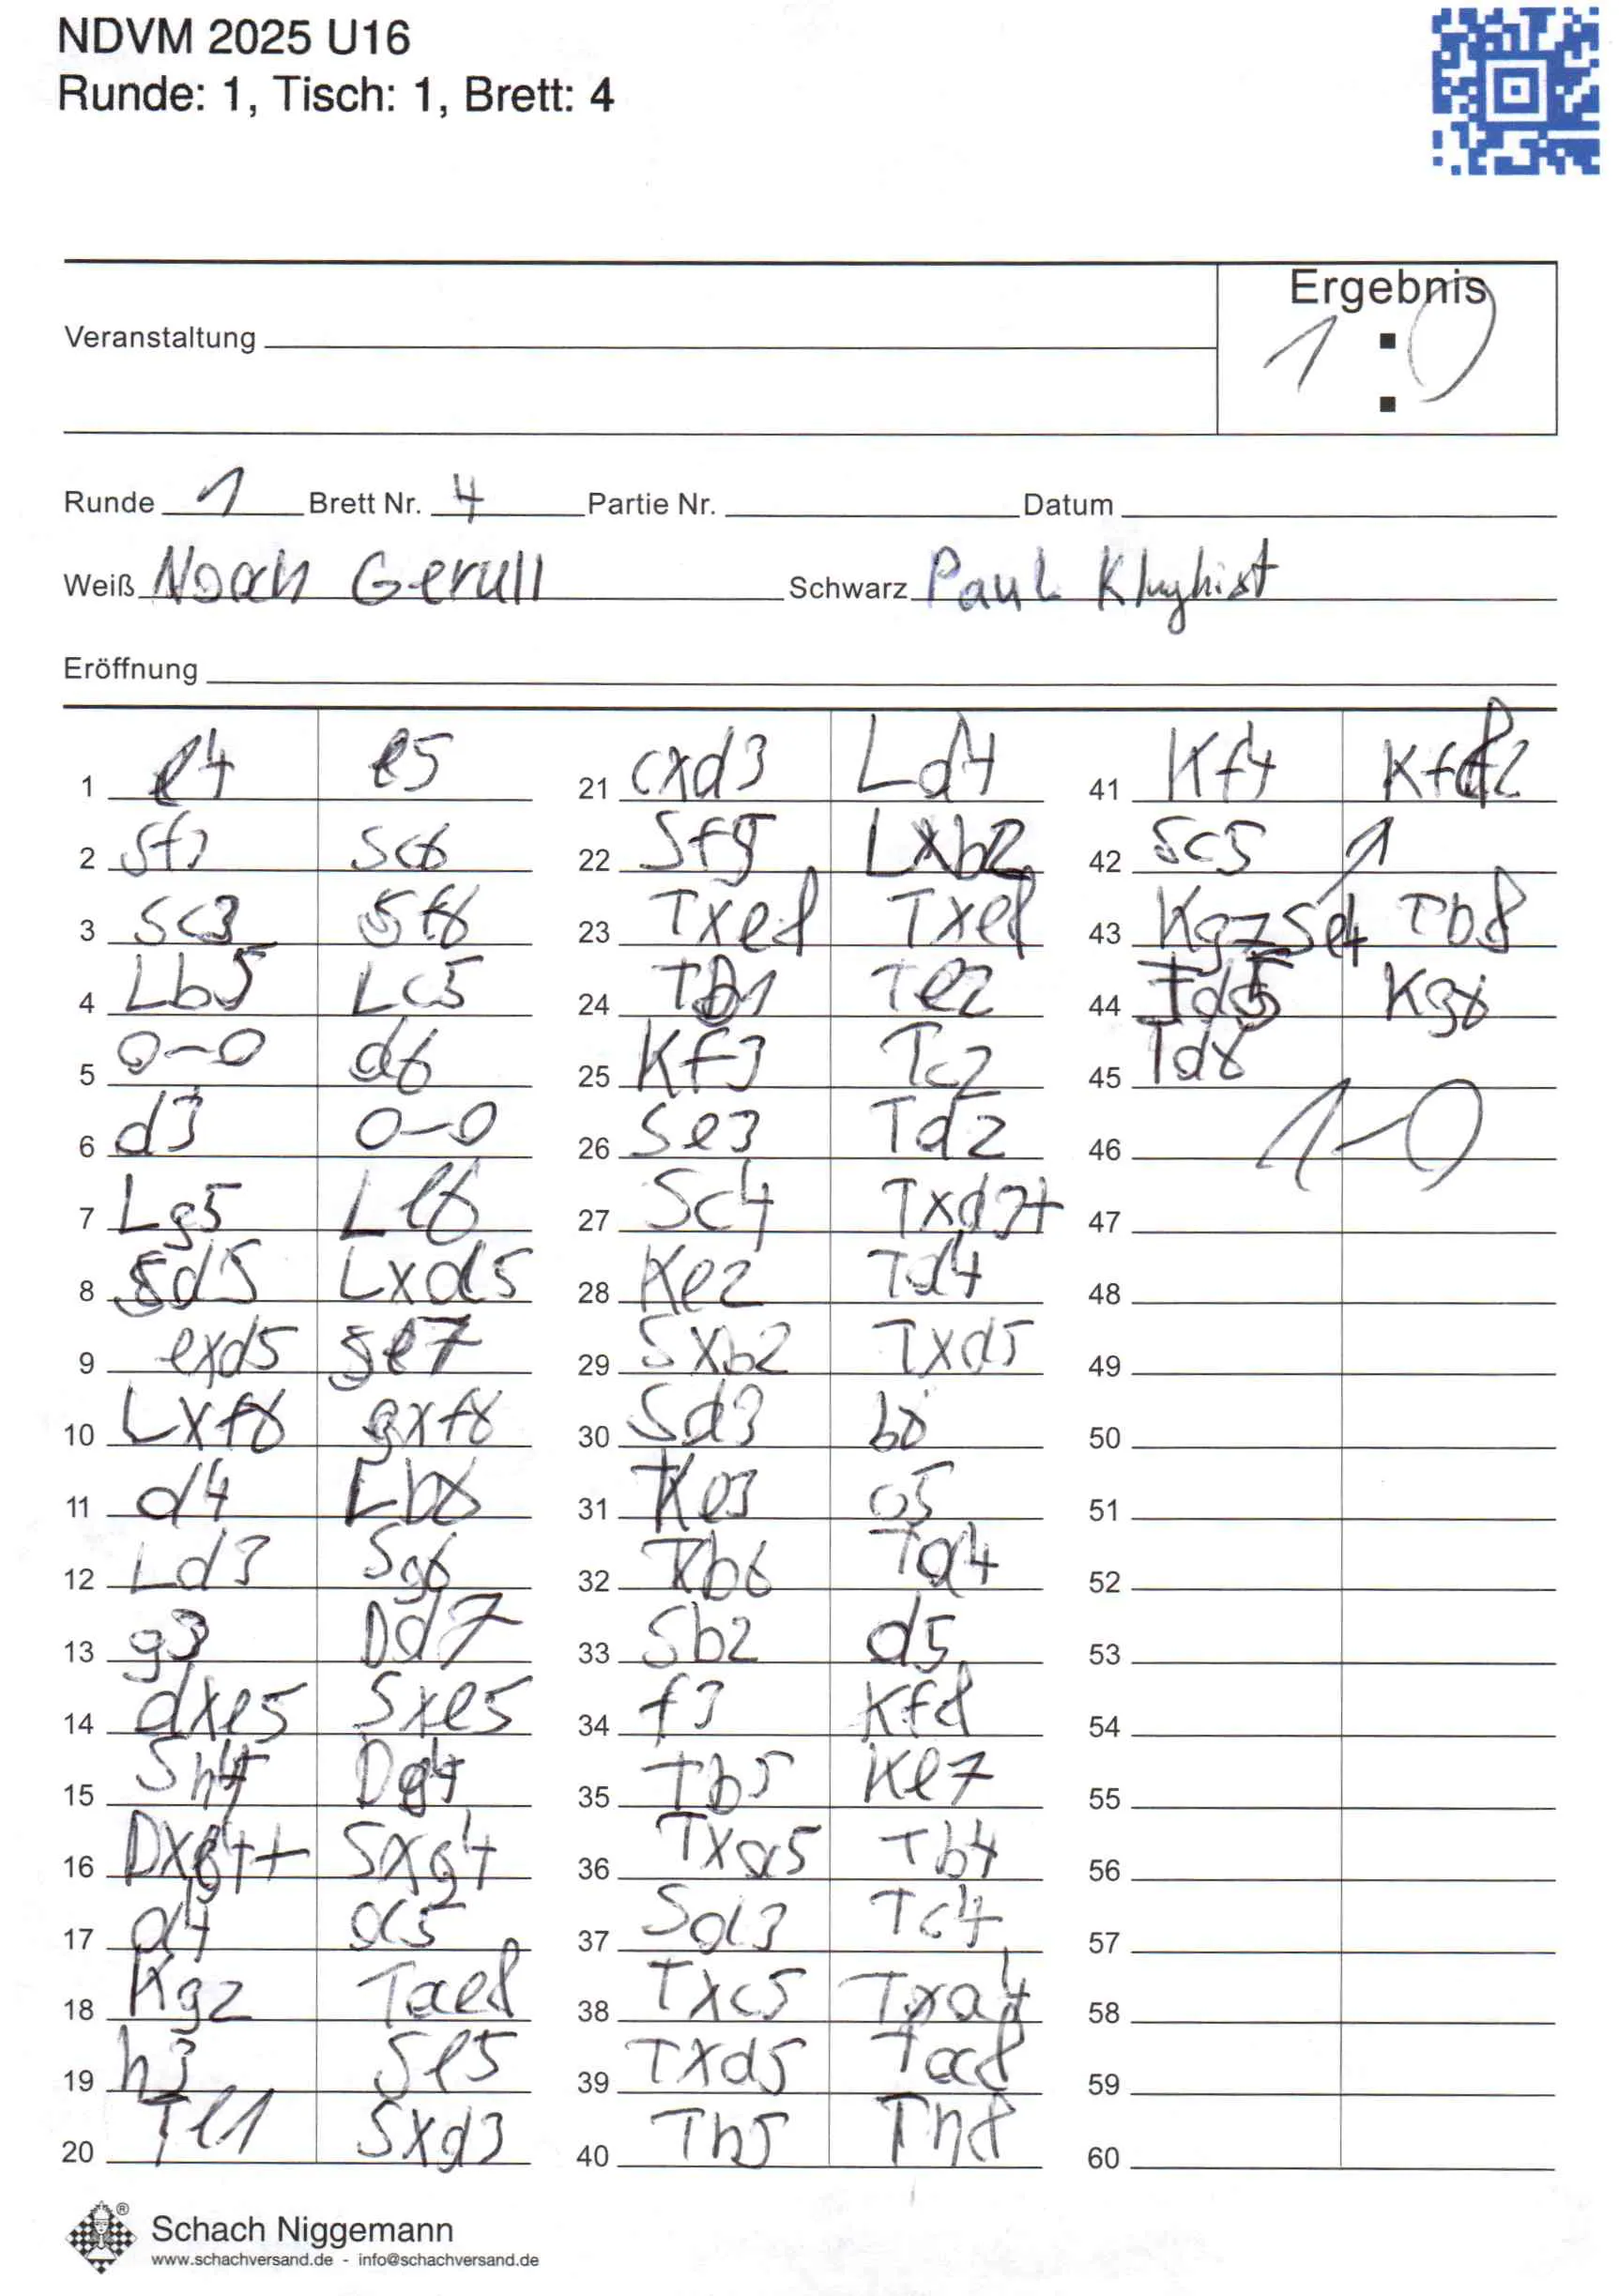 NDVM 2025 U16
Runde: 1, Tisch: 1, Brett: 4
Ergebnis
Veranstaltung
1 : 0
:
Runde 1 Brett Nr. 4 Partie Nr. Datum
Weiß Noah Gerull Schwarz Paul
Eröffnung
1 e4 e5
2 Sf3 Sc6
3 Sc3 Sf6
4 Lb5 Lc5
5 0-0 d6
6 d3 0-0
7 Lg5 Le6
8 Sd5 Lxd5
9 exd5 Se7
10 Lxf6 gxf6
11 d4 Lb6
12 Ld3 Sg6
13 g3 Dd7
14 dxe5 Sxe5
15 Sh4 Dg4
16 Dxg4+ Sxg4
17 a4 a5
18 Kg2 Tae8
19 h3 Se5
20 Te1 Sxd3
21 cxd3 Ld4
22 Sf5 Lxb2
23 Txe8 Txe8
24 Tb1 Te2
25 Kf3 Tc2
26 Se3 Td2
27 Sc4 Txd3+
28 Ke2 Td4
29 Sxb2 Txd5
30 Sd3 b6
31 Ke3 c5
32 Txb6 Td4
33 Sb2 d5
34 f3 Kf8
35 Tb5 Ke7
36 Txa5 Tb4
37 Sd3 Tc4
38 Txc5 Txa4
39 Txd5 Ta8
40 Th5 Th8
41 Kf4
42 Sc5
43 Se4 Tb8
44 Td5 Kg6
45 Td6
46 1-0
47
48
49
50
51
52
53
54
55
56
57
58
59
60
Schach Niggemann
www.schachversand.de - info@schachversand.de